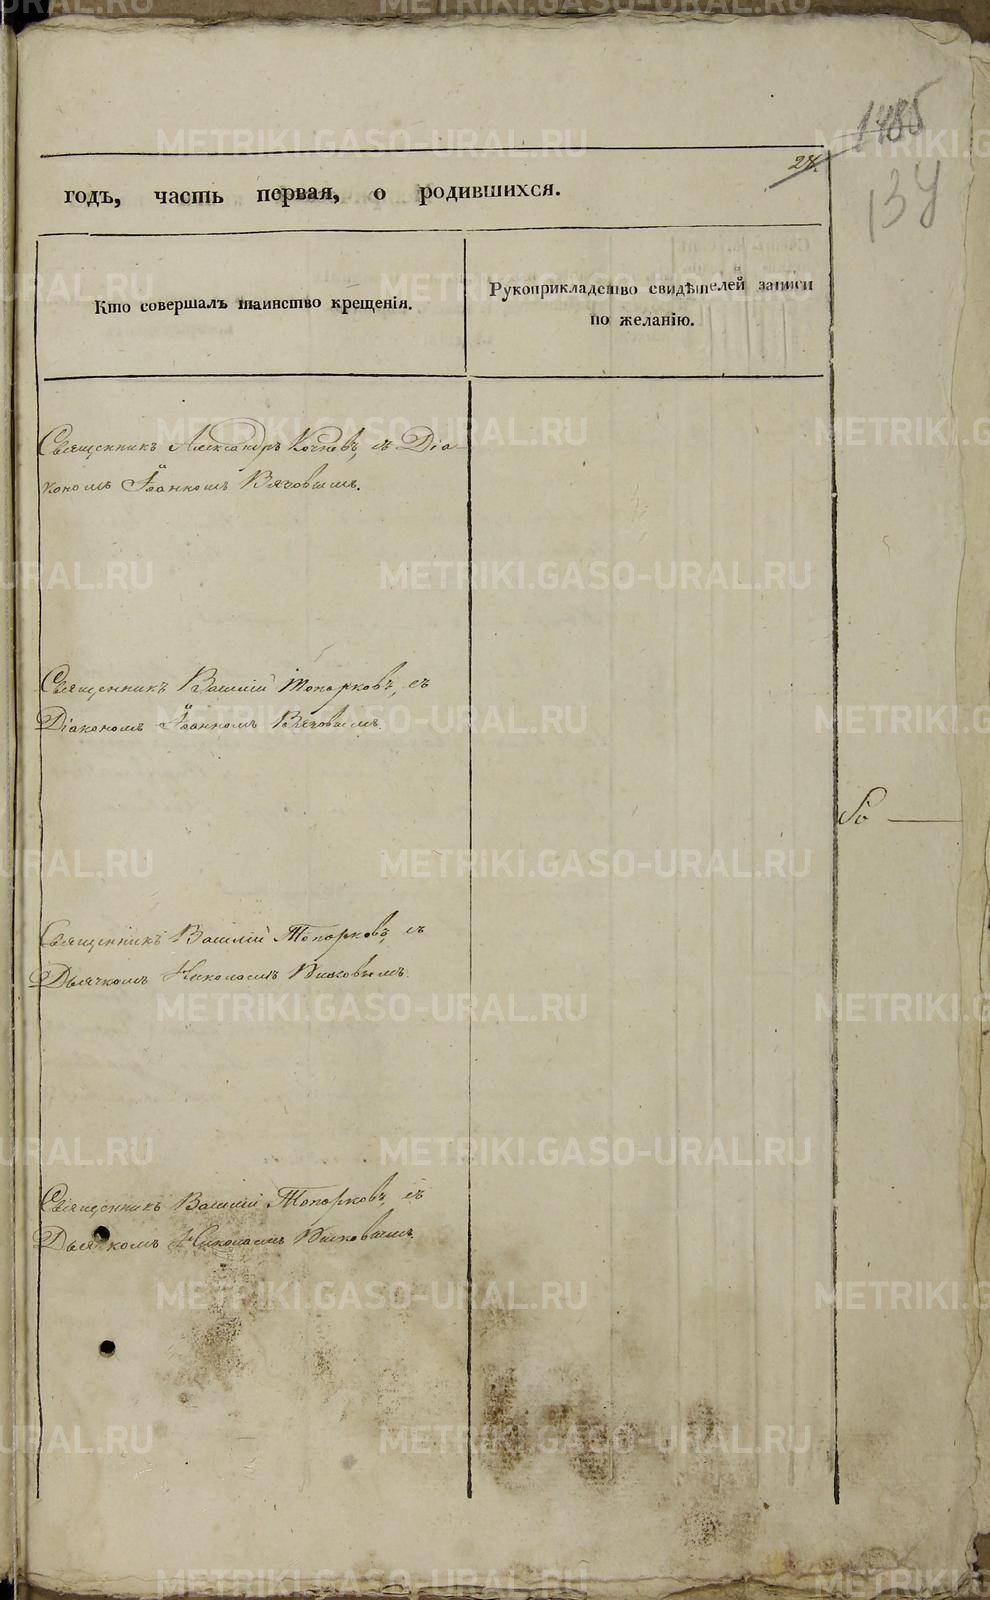 1485
27.
137
годъ, часть первая, о родившихся.
Кто совершалъ таинство крещенія.
Рукоприкладство свидѣтелей записи
по желанію.
Священникъ Александръ Кочневъ, съ Діа-
кономъ Іоанномъ
Священникъ Василій Топорковъ, съ
Діакономъ Іоанномъ
Священникъ Василій Топорковъ, съ
Дьячкомъ Николаемъ
Священникъ Василій Топорковъ, съ
Дьячкомъ Николаемъ
METRIKI.GASO-URAL.RU